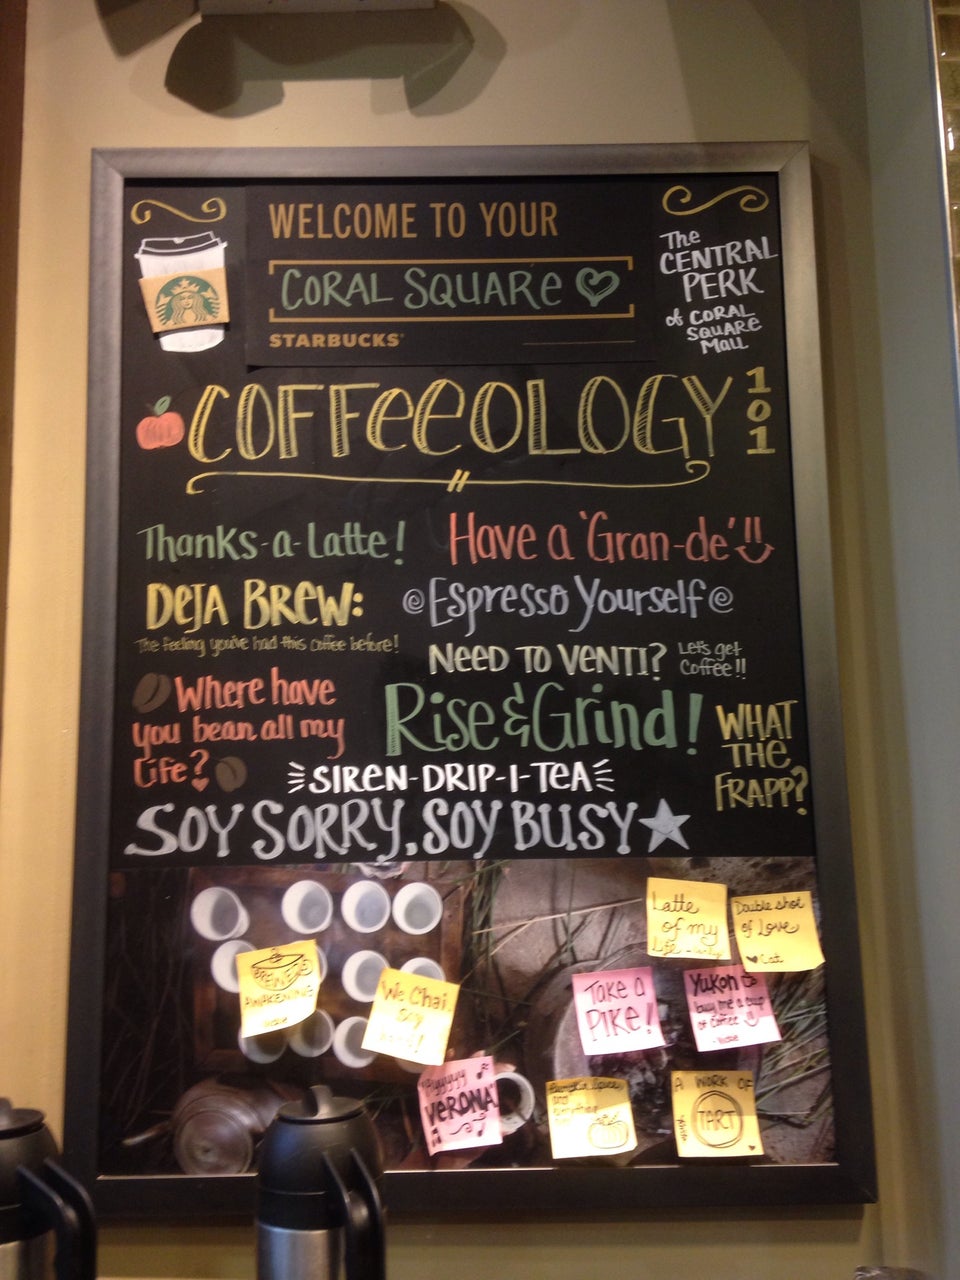 WELCOME TO YOUR
CORAL SQUARE
STARBUCKS
The
CENTRAL
PERK
of CORAL
SQUARE
Mall
COFFEEOLOGY
101
Thanks-a-Latte!
Have a 'Gran-de'
DEJA BREW:
The feeling you've had this coffee before!
@Espresso Yourself@
NEED TO VENTI?
Let's get
Coffee!!
Where have
you bean all my
Life?
Rise & Grind!
WHAT
THE
FRAPP?
SIREN-DRIP-I-TEA
SOY SORRY, SOY BUSY
Latte
of my
Life
Double shot
of Love
Cat
BREWED
AWAKENING
We Chai
Take a
PIKE!
Yukon
buy me a cup
of coffee
VERONA
Pumpkin Spice
A WORK OF
TART